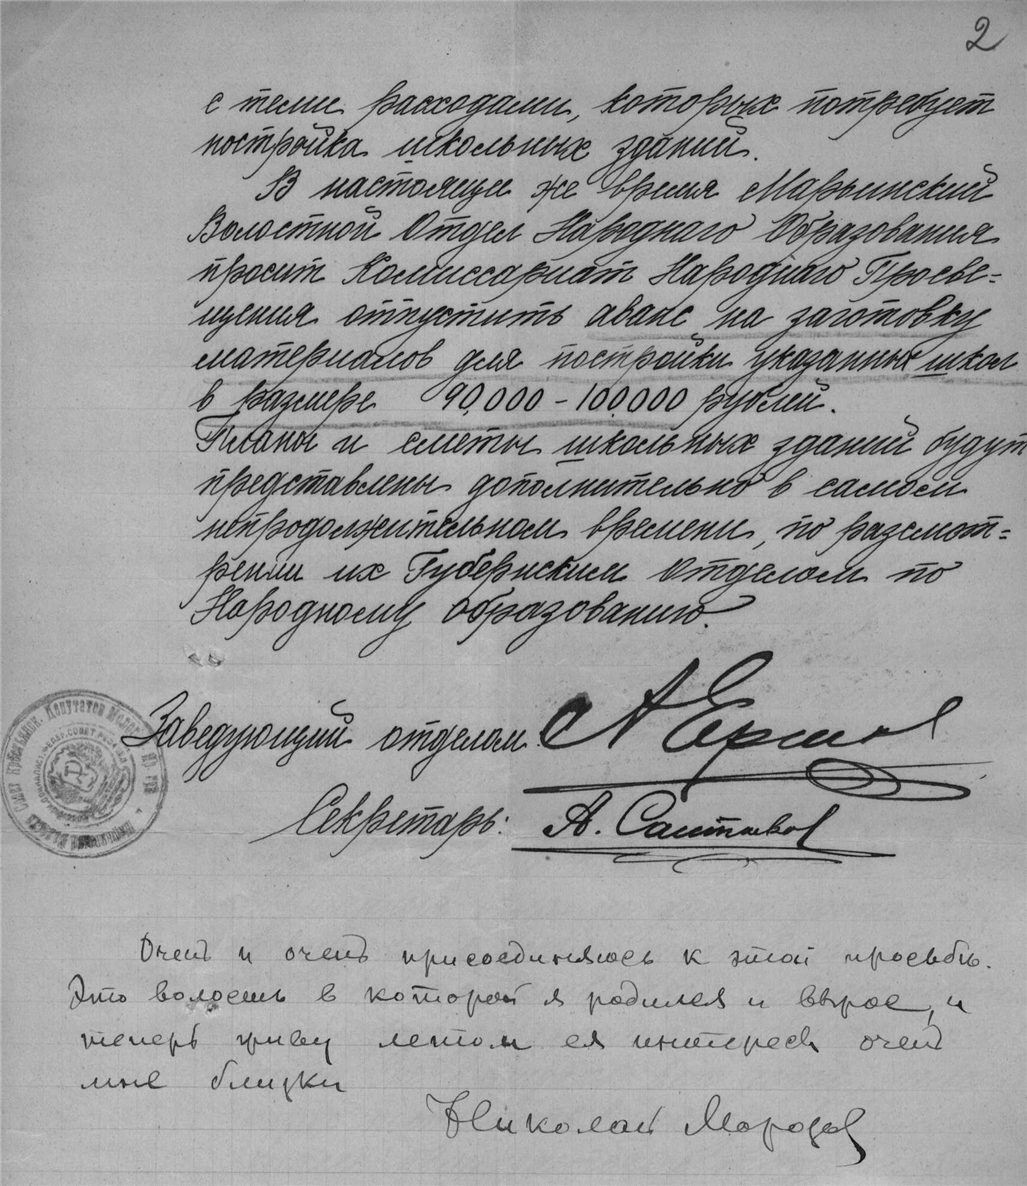 2
с теми расходами, которых потребует
постройка школьных зданий.
В настоящее же время Марьинский
Волостной Отдел Народного Образования
просит Комиссариат Народнаго Просве-
щения отпустить аванс на заготовку
материалов для постройки указанных школ
в размере 90,000 – 100,000 рублей.
Планы и сметы школьных зданий будут
представлены дополнительно в самом
непродолжительном времени, по разсмот-
рении их Губернским Отделом по
Народному образованию.
Заведующий отделом А Ершов
Секретарь: А.
Очень и очень присоединяюсь к этой просьбе.
Это волость в которой я родился и вырос, и
теперь живу летом ея интересы очень
мне близки
Николай Морозов